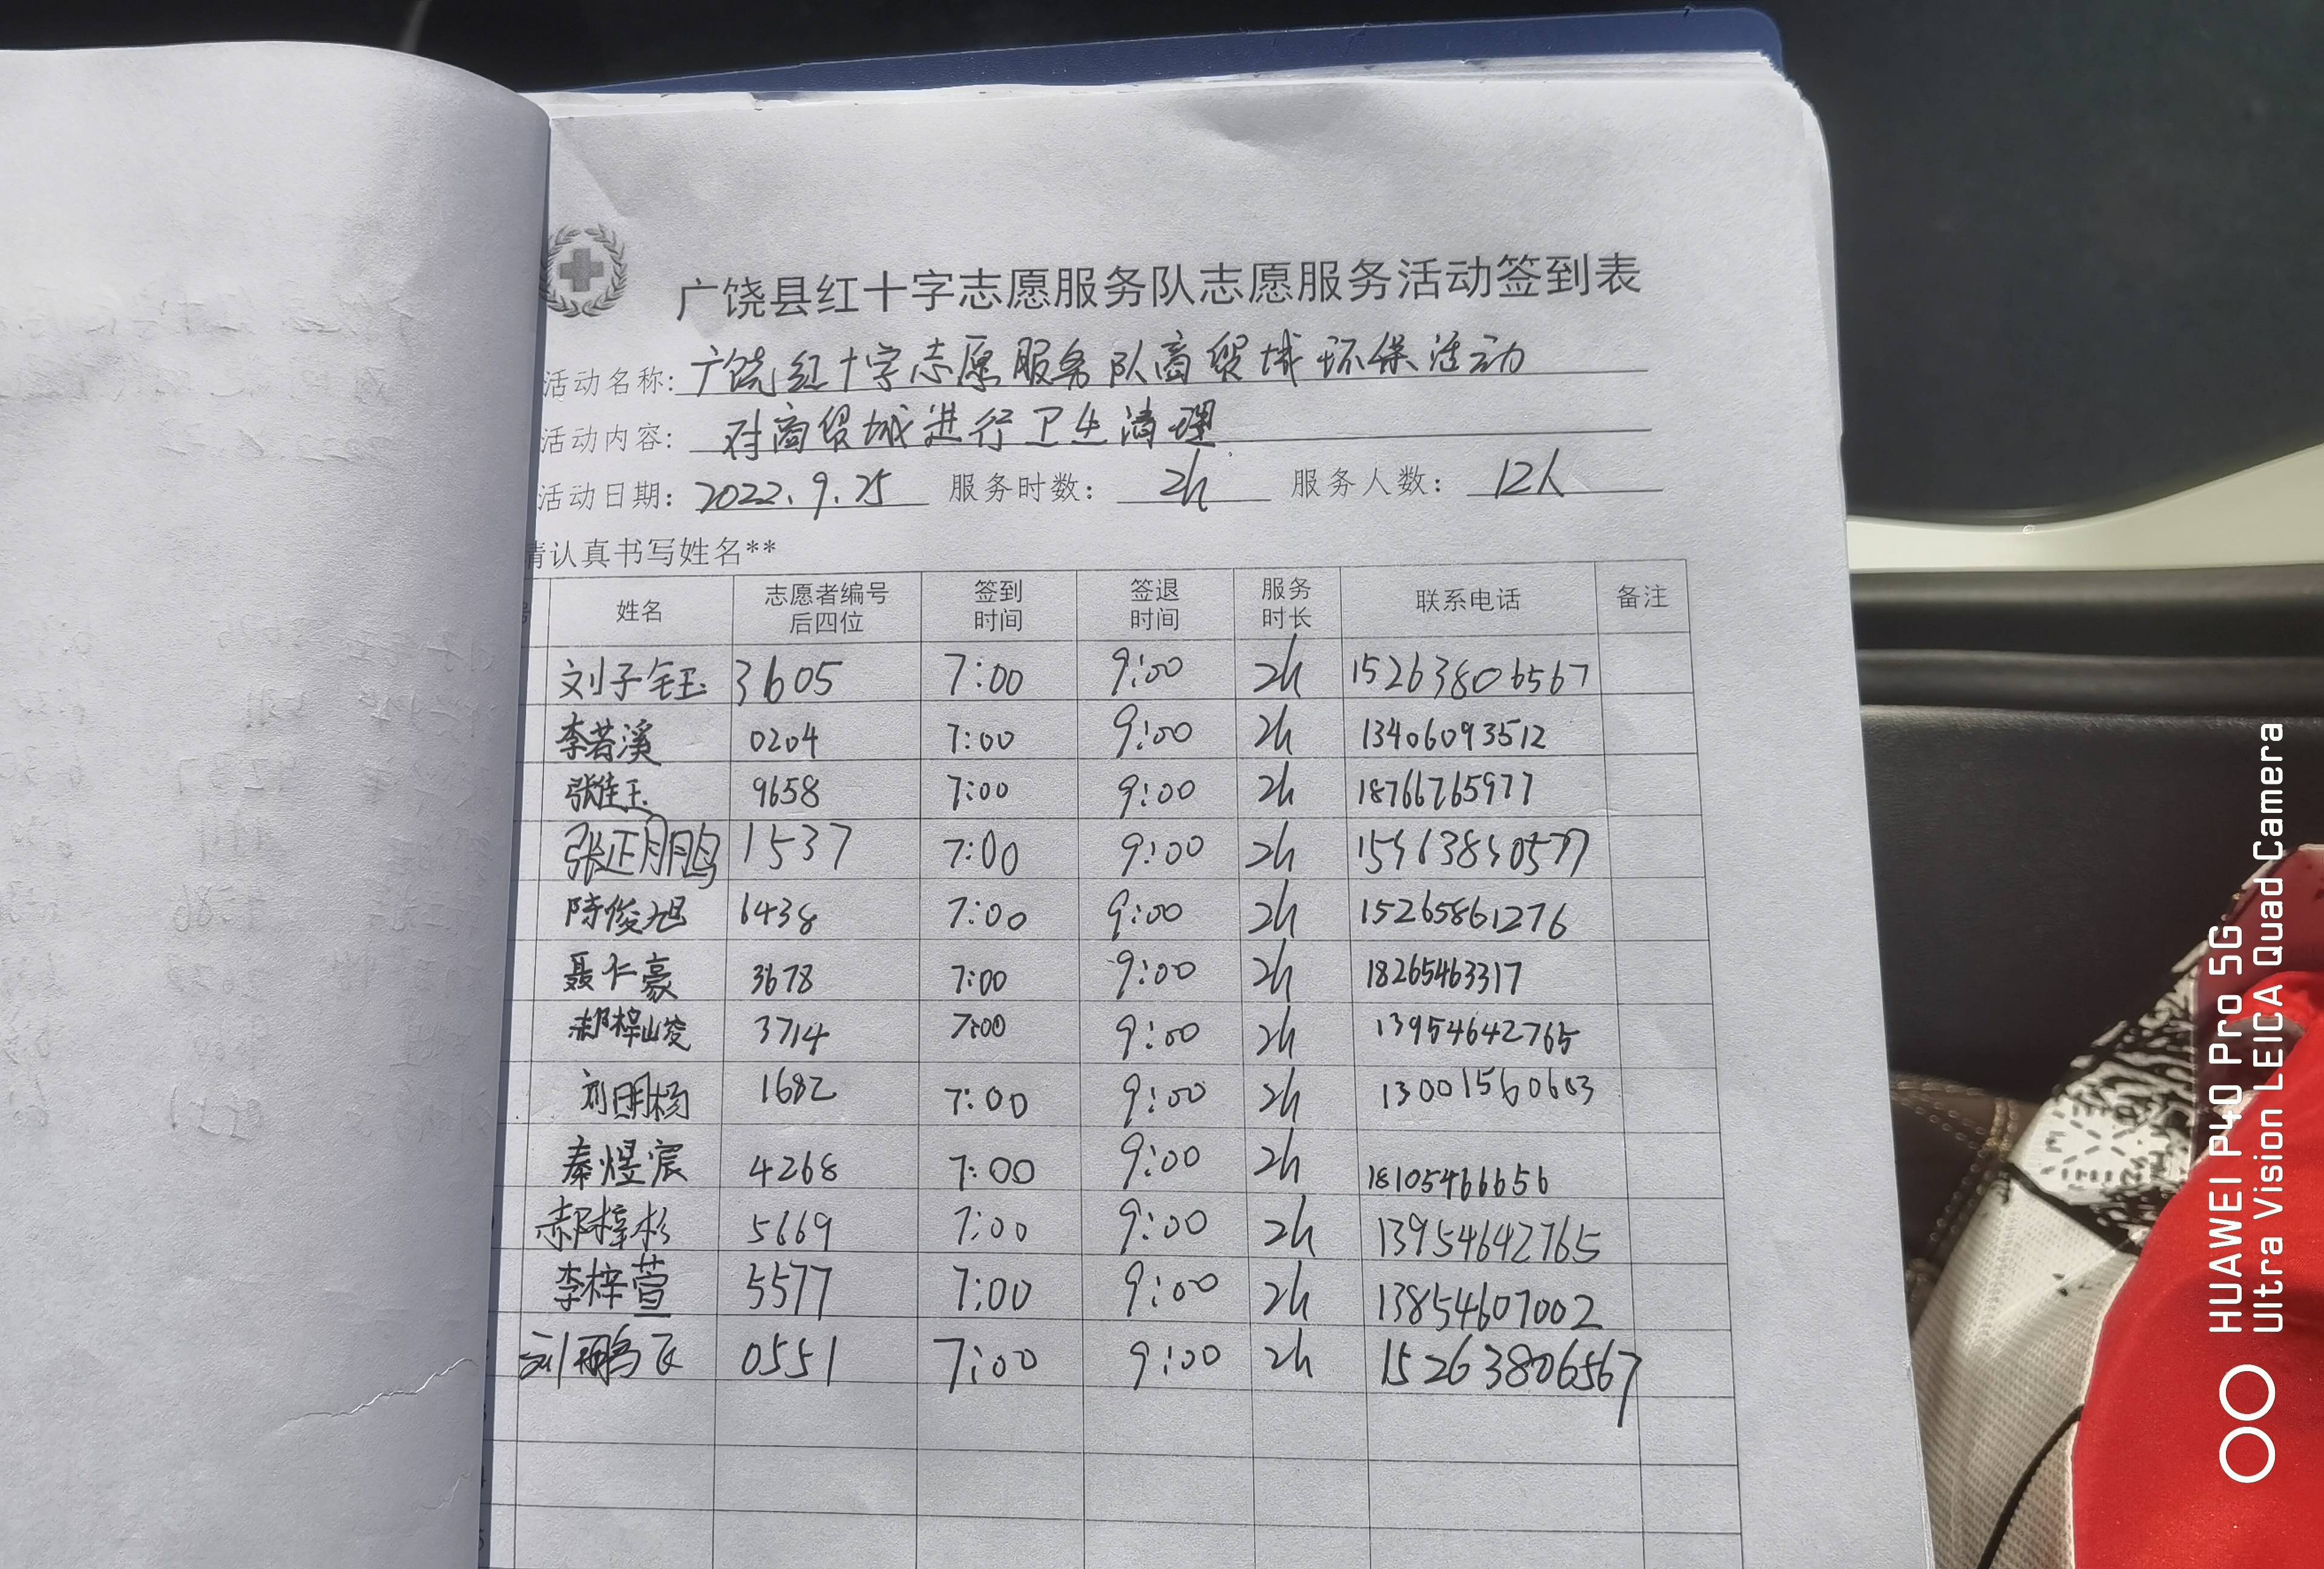 广饶县红十字志愿服务队志愿服务活动签到表
活动名称: 广饶红十字志愿服务队商贸城环保活动
活动内容: 对商贸城进行卫生清理
活动日期: 2022.9.25 服务时数: 2h 服务人数: 12人
请认真书写姓名**
姓名 志愿者编号后四位 签到时间 签退时间 服务时长 联系电话 备注
刘子钰 3605 7:00 9:00 2h 15263806567
李若溪 0204 7:00 9:00 2h 13406093512
张佳玉 9658 7:00 9:00 2h 18766765977
张正鹏 1537 7:00 9:00 2h
陈俊旭 6438 7:00 9:00 2h 15265861276
聂仁豪 3678 7:00 9:00 2h 18265463317
郝梓峻 3714 7:00 9:00 2h 13954642765
刘明杨 1682 7:00 9:00 2h 13001560603
秦煜宸 4268 7:00 9:00 2h 18105466656
郝梓杉 5669 7:00 9:00 2h 13954642765
李梓萱 5577 7:00 9:00 2h 13854607002
刘鹏飞 0551 7:00 9:00 2h 15263806567
HUAWEI P40 Pro 5G
Ultra Vision LEICA Quad Camera